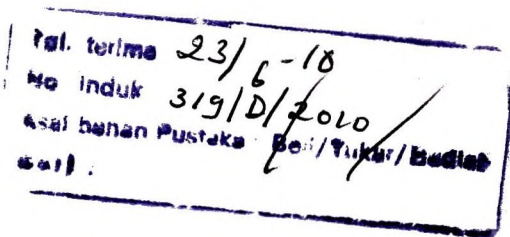 Tgl. terima 23/6-10
No induk 319/D/2010
Asal bahan Pustaka : Beli/Tukar/Hadiah
dari :